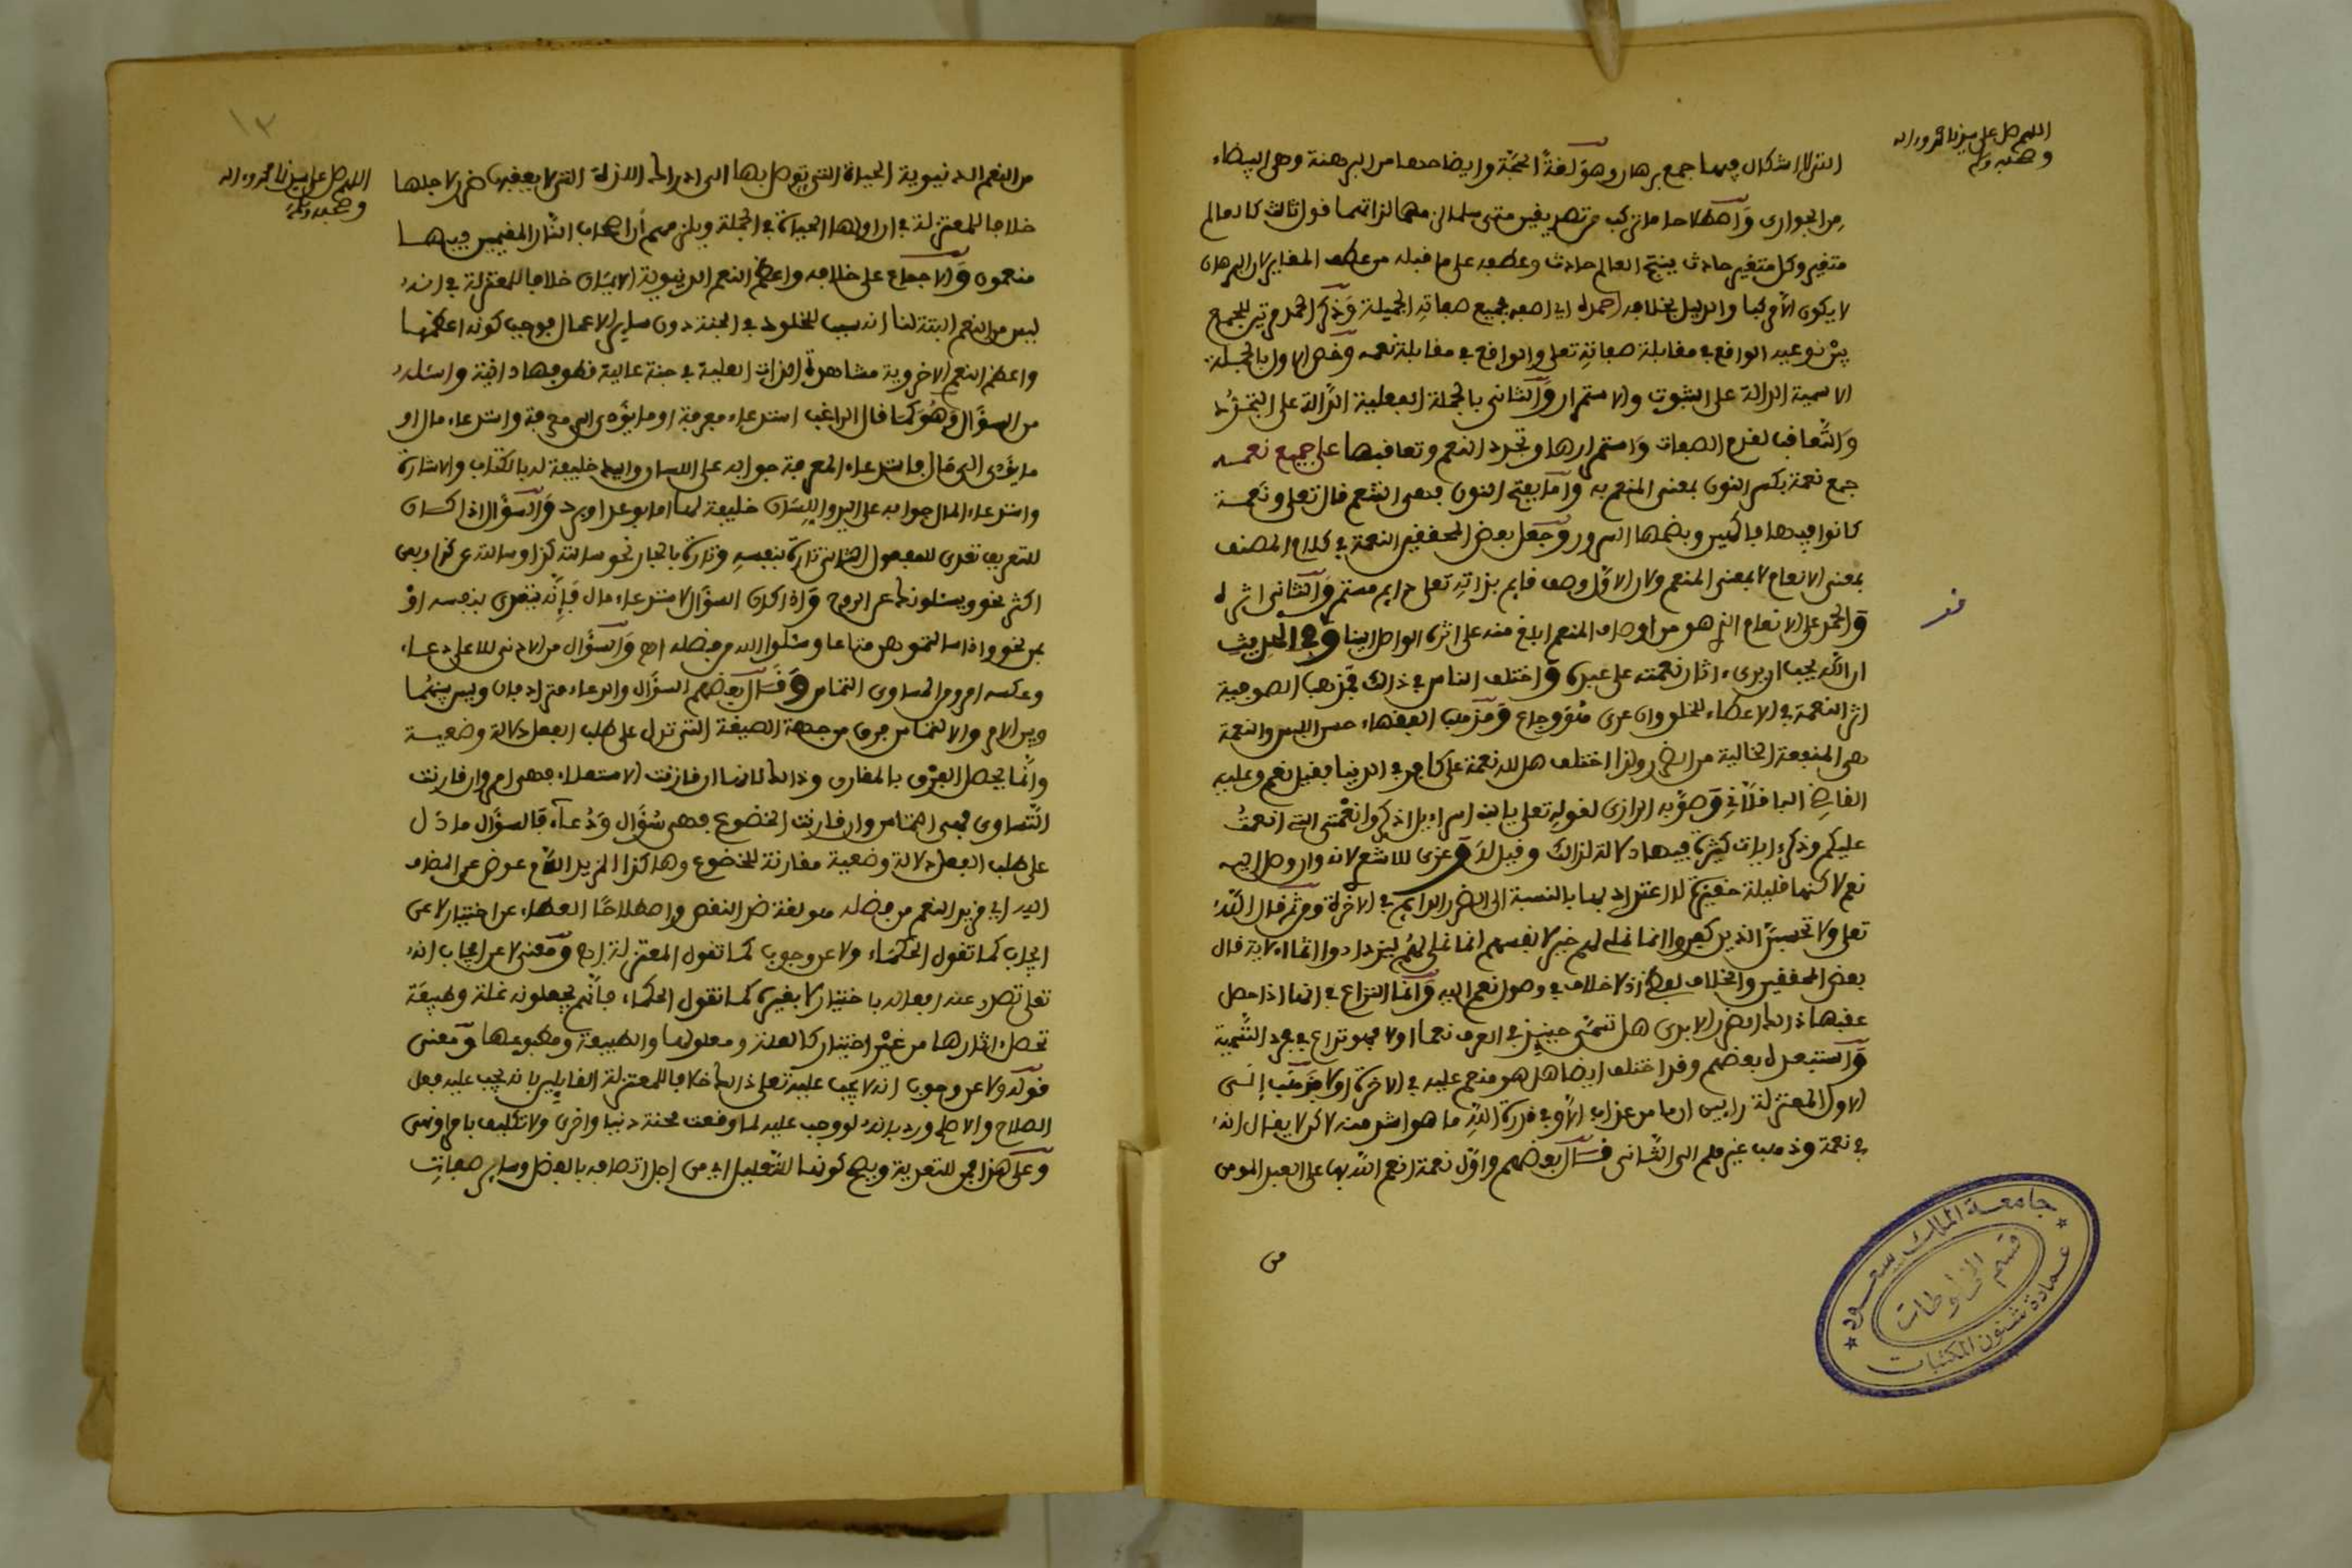 اللهم صل على سيدنا محمد واله
وصحبه وسلم
التي لا اشكال فيها جمع برهان وهو لغة الحجة وايضاحها من البرهنة وهى البيضاء
من الجوارى واصطلاحا ما تركب من تصديقين متى سلما لزم عنهما لذاتهما قول ثالث كالعالم
متغير وكل متغير حادث ينتج العالم حادث وعطفه على ما قبله من عطف المغاير لان البرهان
لا يكون الا مركبا والدليل بخلافه احمده اى اصفه بجميع صفاته الجميلة وذكر الحمد مرتين للجمع
بين نوعيه الواقع فى مقابلة صفاته تعلى والواقع فى مقابلة نعمه وخص الاول بالجملة
الاسمية الدالة على الثبوت والاستمرار والثانى بالجملة الفعلية الدالة على التجدد
والتعاقب لقدم الصفات واستمرارها وتجدد النعم وتعاقبها على جميع نعمه
جمع نعمة بكسر النون بمعنى المنعم به واما بفتح النون فهى التنعم قال تعلى ونعمة
كانوا فيها فاكهين وبضمها السرور وجعل بعض المحققين النعمة فى كلام المصنف
بمعنى الانعام لا بمعنى المنعم ولان الاول وصف قايم بذاته تعلى دايم مستمر والثانى اثر له
والحمد على الانعام الذى هو من اوصاف المنعم ابلغ منه على اثره الواصل الينا وفى الحديث
ان الله يحب ان يرى ءاثار نعمته على عبده واختلف الناس فى ذلك فمذهب الصوفية
اثر النعمة فى الاعطاء للخلق وان عرى ثوبه وجاع ومذهب الفقهاء حسن اللبس والنعمة
هى المنفعة الخالية من الضرر ولذا اختلف هل لله نعمة على كافر فى الدنيا فقيل نعم وعليه
القاضى الباقلانى وصوبه الرازى لقوله تعلى يا بنى اسراءيل اذكروا نعمتى التى انعمت
عليكم وذكر ءايات كثيرة فيها دلالة لذلك وقيل لا وعزى للاشعرى لانه وان وصل اليه
نعم لاكنها قليلة حقيرة لا اعتداد بها بالنسبة الى الضرر الدايم فى الاخرة ومن ثم قال الله
تعلى ولا تحسبن الذين كفروا انما نملى لهم خير لانفسهم انما نملى لهم ليزدادوا اثما الاية قال
بعض المحققين والخلاف لفظى اذ لا خلاف فى وصول نعم اليه وانما النزاع فى انها اذا حصل
عقبها ذلك الضرر الابدى هل تسمى حينيذ فى العرف نعما اولا فهو نزاع فى مجرد التسمية
واستبعد له بعضهم وقد اختلف ايضا هل هو منعم عليه فى الاخرة اولا فذهب الى
الاول المعتزلة اذ ليس اما من عذاب الا وفى قدرة الله ما هو اشد منه لاكن لا يقال انه
فى نعمة وذهب غيرهم الى الثانى قال بعضهم واول نعمة انعم الله بها على العبد المومن
من
جامعة الملك سعود
قسم المخطوطات
عمادة شئون المكتبات
١٣
اللهم صل على سيدنا محمد واله
وصحبه وسلم
من النعم الدنيوية الحياة التى يتوصل بها الى ادراك اللذة التى لا يعقبها ضرر لاجلها
خلافا للمعتزلة فى ان اولها الحياة فى الجملة ويلزمهم أن اصحاب النار المقيمين فيها
منعمون والاجماع على خلافه واعظم النعم الدنيوية الايمان خلافا للمعتزلة فى انه
ليس من النعم البتة لنا انه سبب للخلود فى الجنة دون ساير الاعمال فوجب كونه اعظمها
واعظم النعم الاخروية مشاهدة الذات العلية فى جنة عالية قطوفها دانية واسئله
من السؤال وهو كما قال الراغب استدعاء معرفة او ما يؤدى الى معرفة واستدعاء مال او
ما يؤدى الى مال فاستدعاء المعرفة جوابه على اللسان واليد خليفة له بالكتاب والاشارة
واستدعاء المال جوابه على اليد واللسان خليفة لها اما بوعد او برد والسؤال اذا كان
للتعريف تعدى للمفعول الثانى تارة بنفسه وتارة بالجار نحو سالته كذا وسالته عن كذا وبعن
اكثر نحو ويسئلونك عن الروح واذا كان السؤال لاستدعاء مال فإنه يتعدى بنفسه او
بمن نحو واذا سالتموهن متاعا وسئلوا الله من فضله اه والسؤال من الادنى للاعلى دعاء
وعكسه امر ومن المساوى التماس وقال بعضهم السؤال والدعاء مترادفان وبين بينهما
وبين الامر والالتماس فرق من جهة الصيغة التى تدل على طلب الفعل دلالة وضعية
وانما يحصل الفرق بالمقارن وذلك لانها ان قارنت الاستعلاء فهى امر وان قارنت
التساوى فهى التماس وان قارنت الخضوع فهى سؤال ودعاء فالسؤال ما دل
على طلب الفعل دلالة وضعية مقارنة للخضوع وهاكذا المزيد اللام عوض عن المضاف
اليه اى مزيد النعم من فضله هو لغة ضد النقص واصطلاحا العطاء عن اختيار لا عن
ايجاب كما تقول الحكماء ولا عن وجوب كما تقول المعتزلة اه ومعنى لا عن ايجاب انه
تعلى تصدر عنه افعاله باختيار لا بغيره كما تقول الحكماء فانهم يجعلونه علة وطبيعة
تحصل ءاثارها من غير اختيار كالعلة ومعلولها والطبيعة ومطبوعها ومعنى
قوله ولا عن وجوب انه لا يجب عليه تعلى ذلك خلافا للمعتزلة القايلين بانه يجب عليه فعل
الصلاح والاصلح ورد بانه لو وجب عليه لما وقعت محنة دنيا واخرى ولا تكليف بامر او نهى
وعلى هذا فمن للتعدية ويصح كونها للتعليل اى من اجل اتصافه بالفضل وساير صفاته